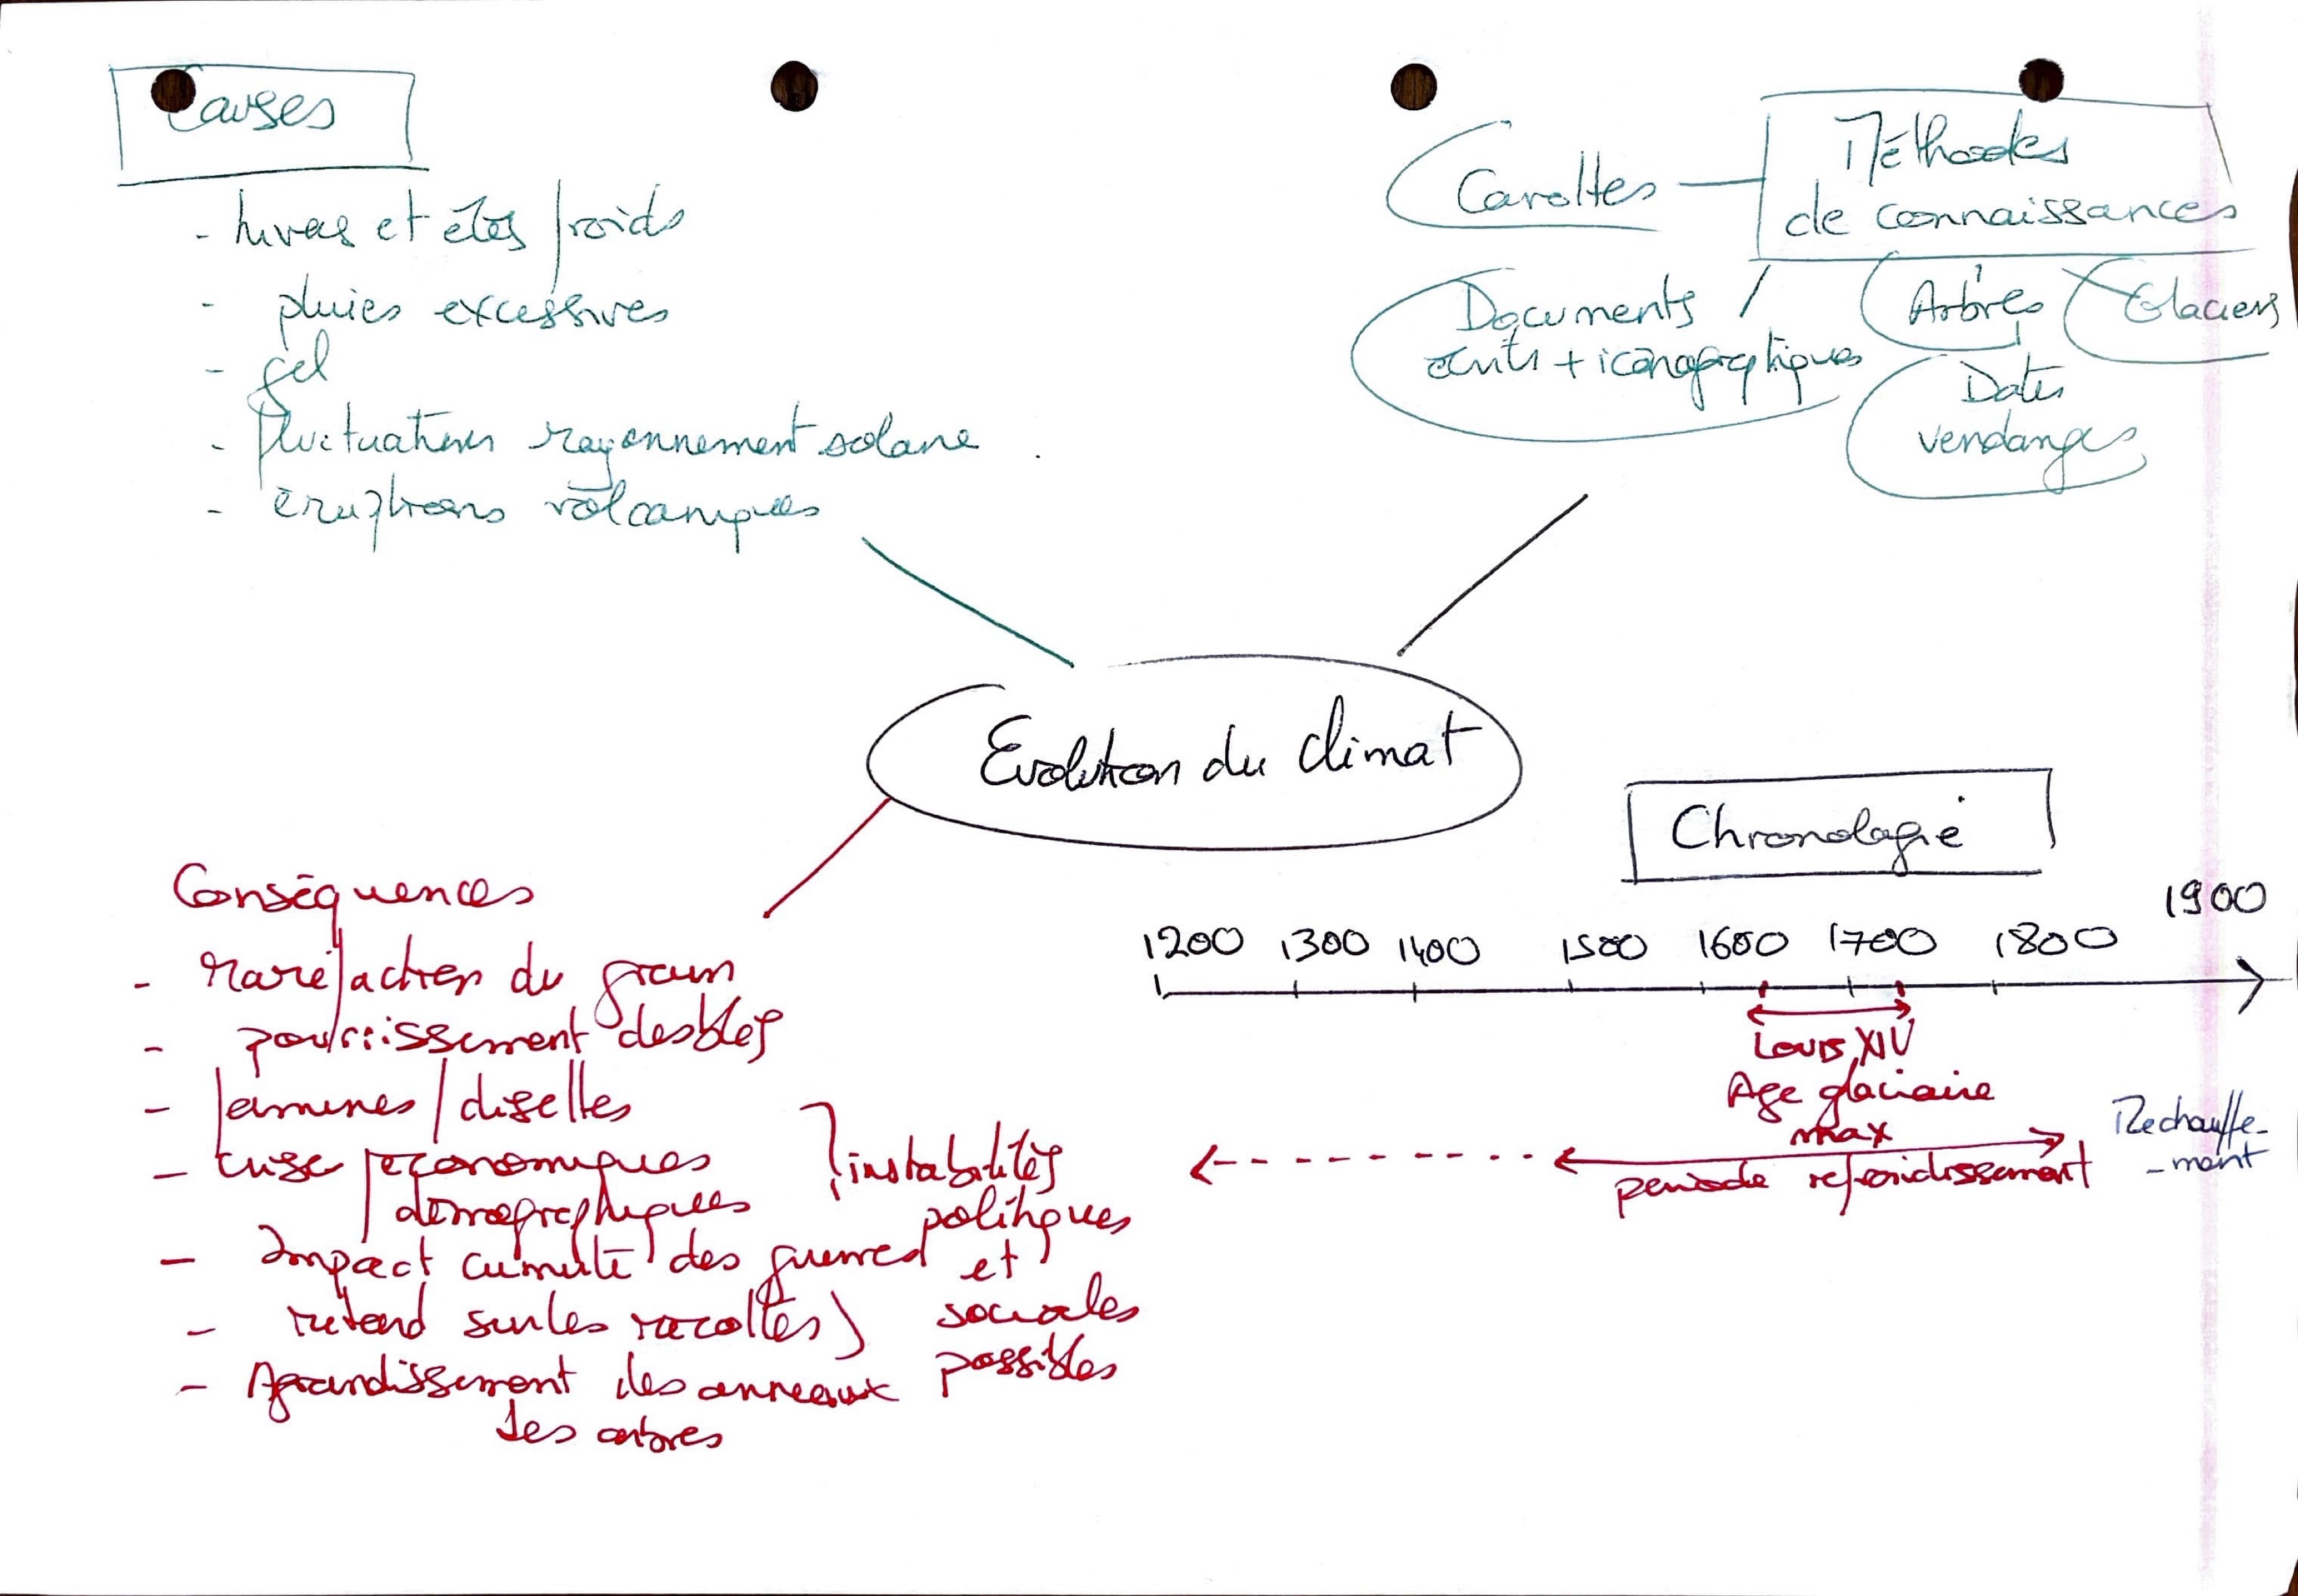 Causes
- hivers et étés froids
- pluies excessives
- gel
- fluctuations rayonnement solaire
- éruptions volcaniques
Méthodes
de connaissances
Carottes
Documents
écrits + iconographiques
Arbres
Glaciers
Dates
vendanges
Evolution du climat
Conséquences
- raréfaction du grain
- pourrissement des blés
- famines / disettes
- crise économiques
démographiques
- Impact cumulé des guerres
- retard sur les récoltes
- Agrandissement des anneaux
des arbres
instabilités
politiques
et
sociales
possibles
Chronologie
1200 1300 1400 1500 1600 1700 1800 1900
Louis XIV
Age glaciaire
max
période refroidissement
Rechauffe-
-ment